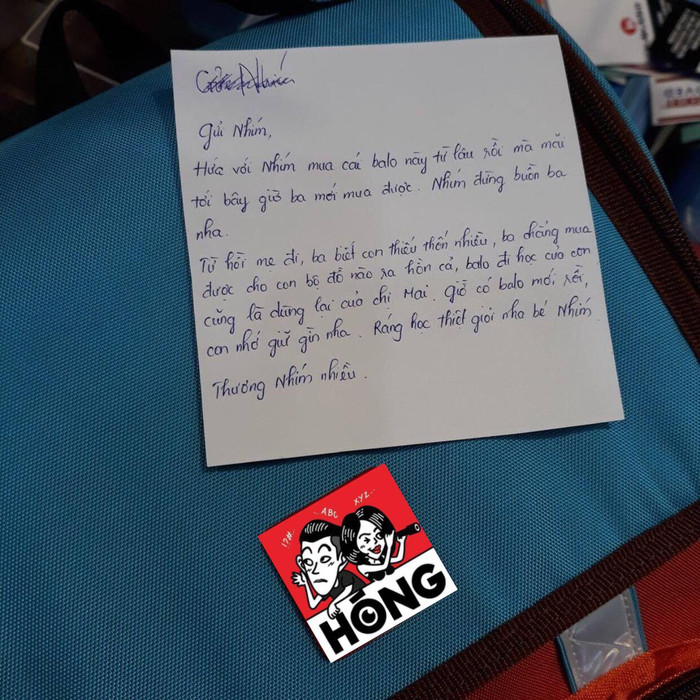 Gửi Nhím,
Hứa với Nhím mua cái balo này từ lâu rồi mà mãi
tới bây giờ ba mới mua được. Nhím đừng buồn ba
nha.
Từ hồi mẹ đi, ba biết con thiếu thốn nhiều, ba chẳng mua
được cho con bộ đồ nào ra hồn cả, balo đi học của con
cũng là dùng lại của chị Mai. Giờ có balo mới rồi,
con nhớ giữ gìn nha. Ráng học thiệt giỏi nha bé Nhím
Thương Nhím nhiều.
!?#.. ABC XYZ..
HÓNG